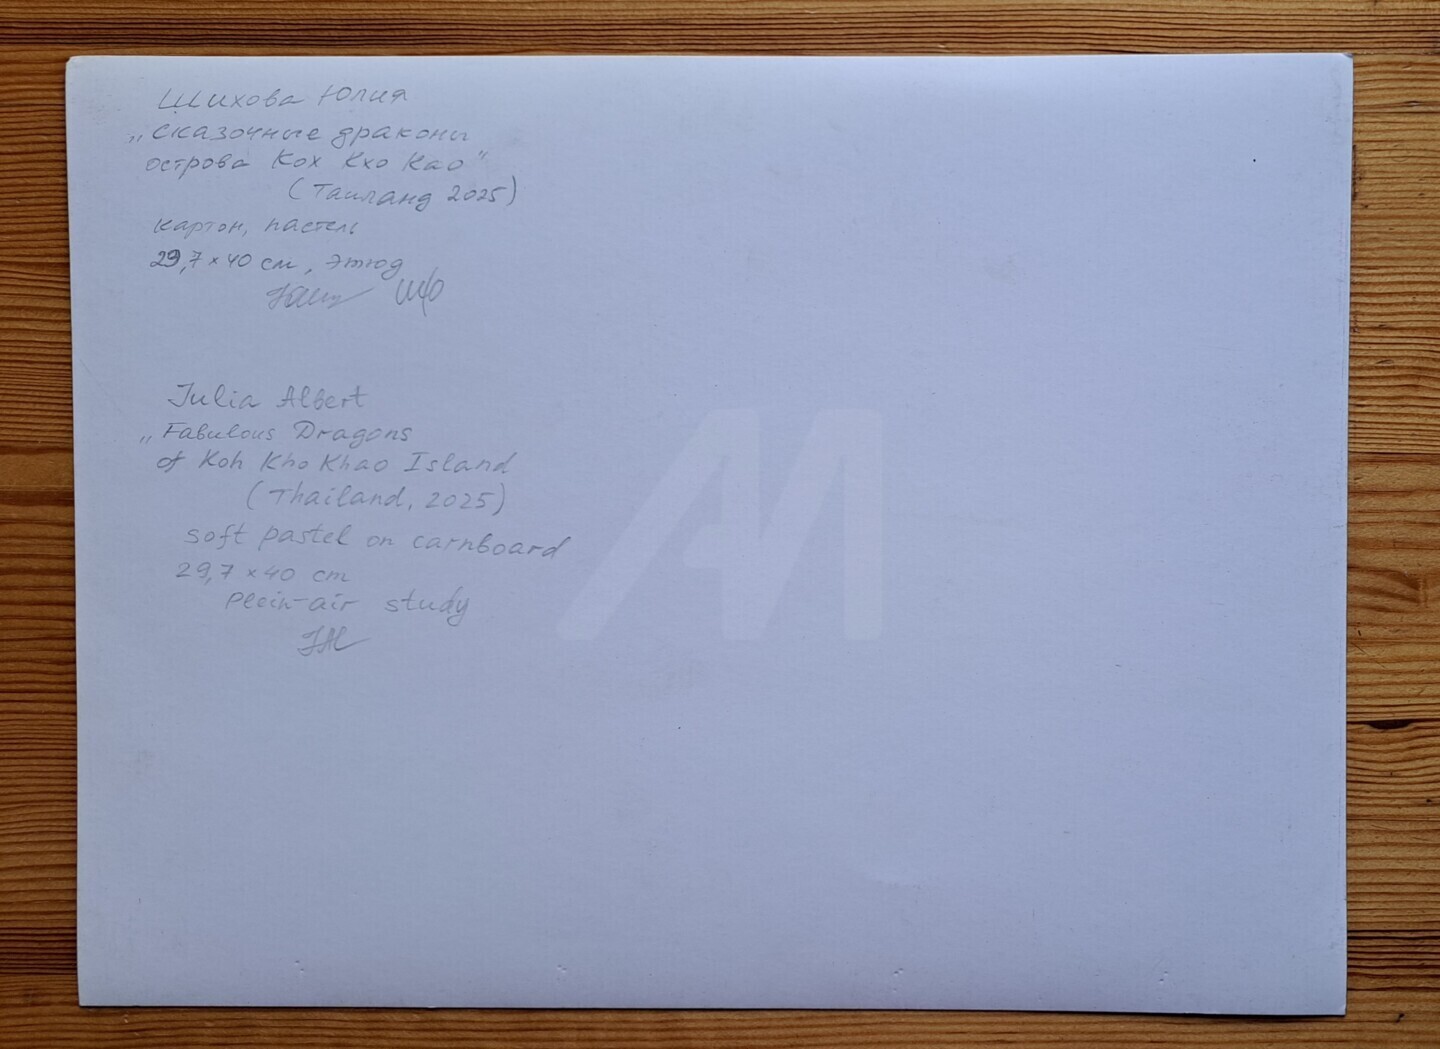 Шихова Юлия
„Сказочные драконы
острова Кох Кхо Као"
(Таиланд 2025)
картон, пастель
29,7×40 см, этюд
Julia Albert
„Fabulous Dragons
of Koh Kho Khao Island
(Thailand, 2025)
soft pastel on carnboard
29,7×40 cm
plein-air study